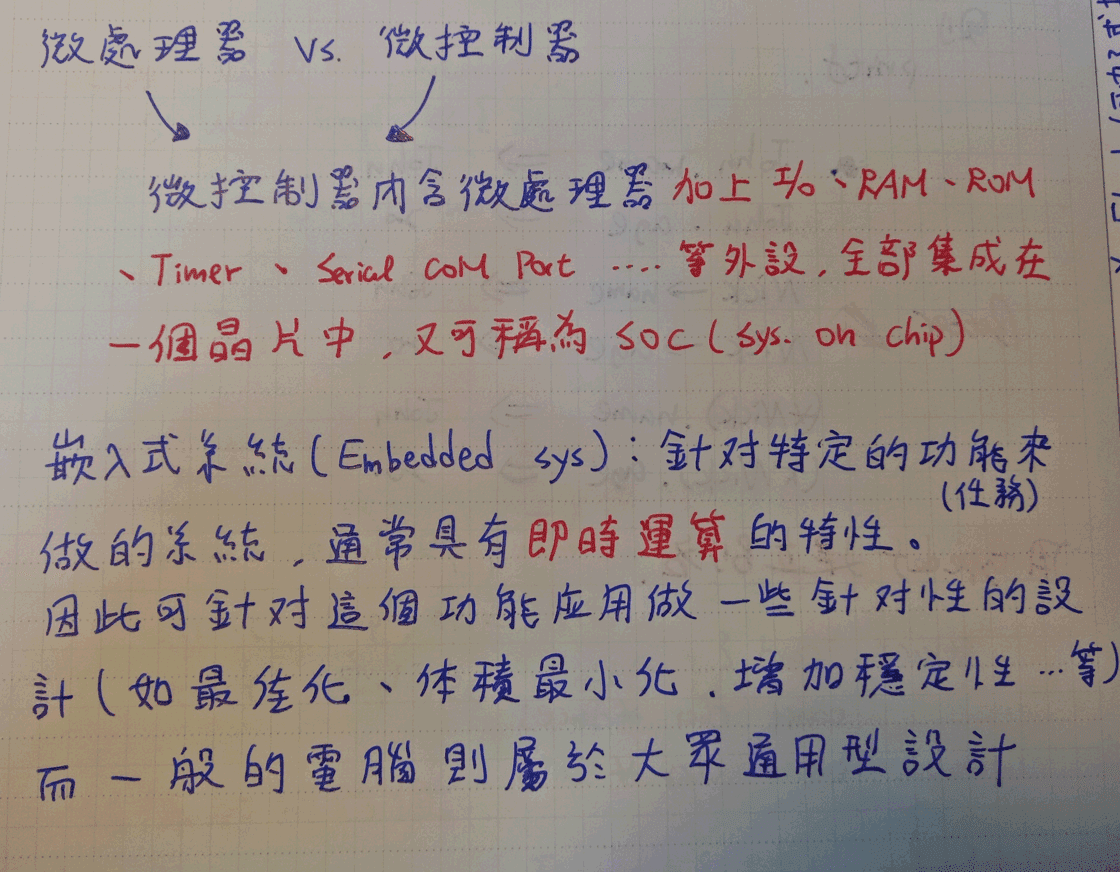 微處理器 vs. 微控制器
微控制器內含微處理器加上 I/O、RAM、ROM
、Timer、Serial COM Port ....等外設,全部集成在
一個晶片中,又可稱為 SOC (sys. on chip)
嵌入式系統(Embedded sys):針对特定的功能來
(任務)
做的系統,通常具有即時運算的特性。
因此可針对這個功能应用做一些針对性的設
計(如最佳化、体積最小化、增加穩定性…等)
而一般的電腦則屬於大眾通用型設計